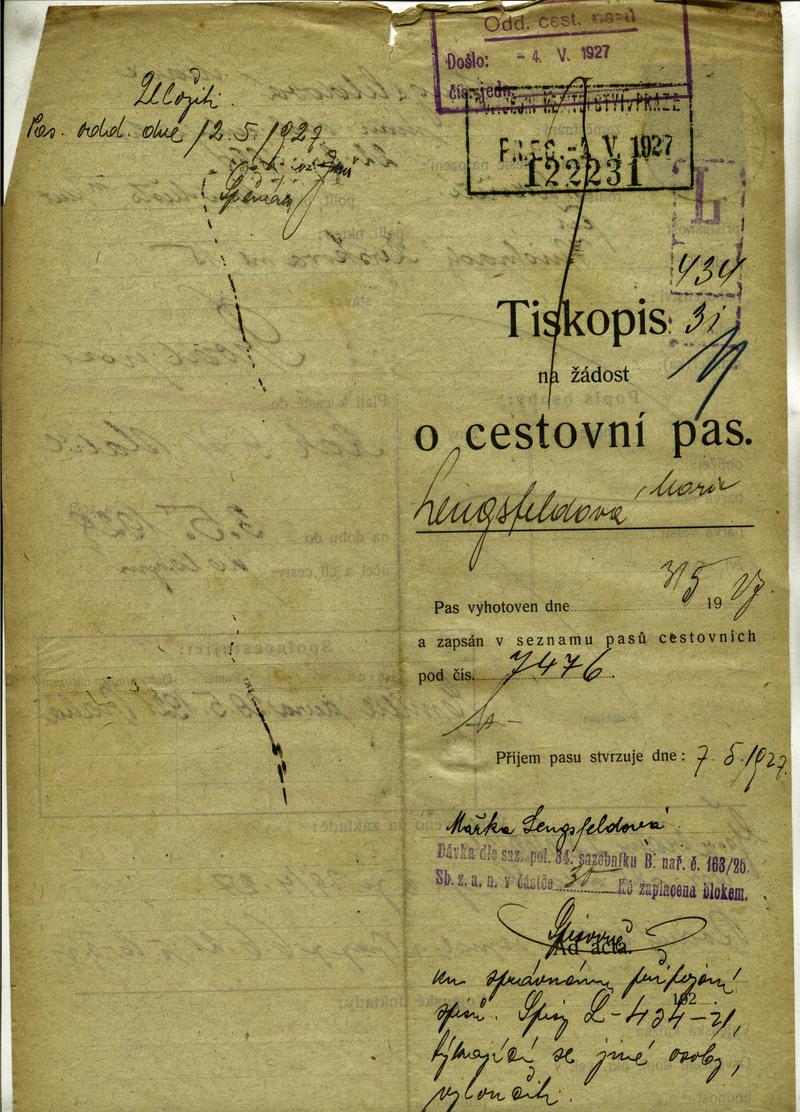 Uložiti.
Pas. odd. dne 12.5.1927
Odd. cest. pasů
Došlo: - 4. V. 1927
čís. jedn.
PRAZE
PREZ. - 4. V. 1927
122231
L
434
31
Tiskopis
na žádost
o cestovní pas.
Lengsfeldová Marie
Pas vyhotoven dne 5 1927
a zapsán v seznamu pasů cestovních
pod čís. 7476.
Příjem pasu stvrzuje dne: 7.5.1927.
Mařka Lengsfeldová
Dávka dle saz. pol. 34. sazebníku B. nař. č. 163/26.
Sb. z. a. n. v částce Kč zaplacena blokem.
Ad acta.
192
ku správnému připojení
spisů. Spisy L-434-21,
týkající se jiné osoby,
vyloučiti.